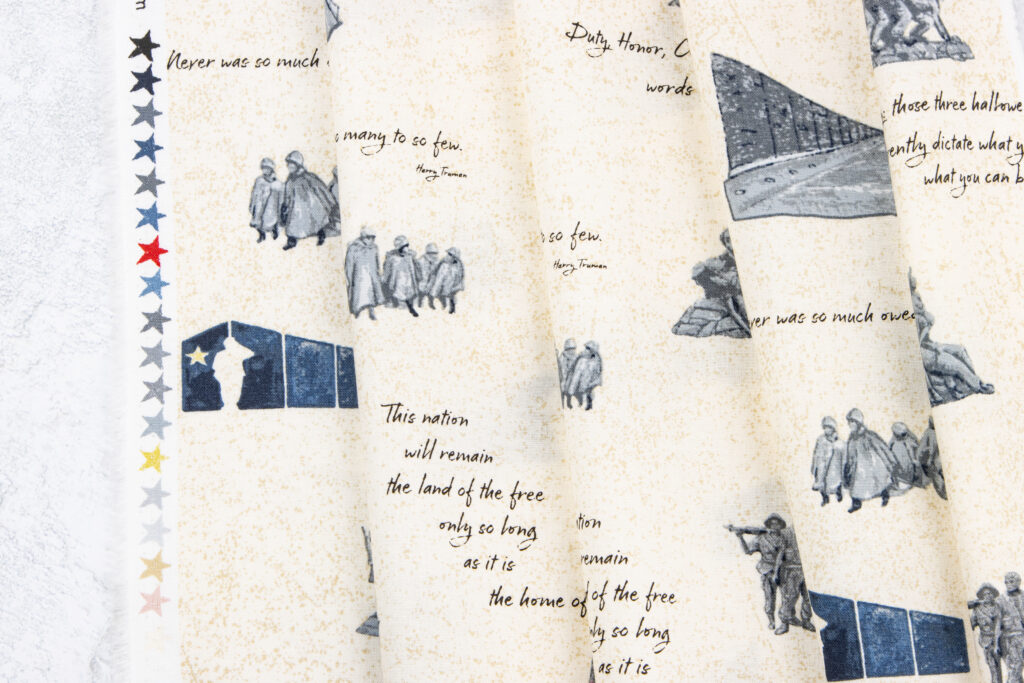 Never was so much
many to so few.
Harry Truman
Duty, Honor, C
words
those three hallowe
ently dictate what y
what you can b
so few.
Harry Truman
ver was so much owed
This nation
will remain
the land of the free
only so long
as it is
the home of
tion
remain
of the free
ly so long
as it is